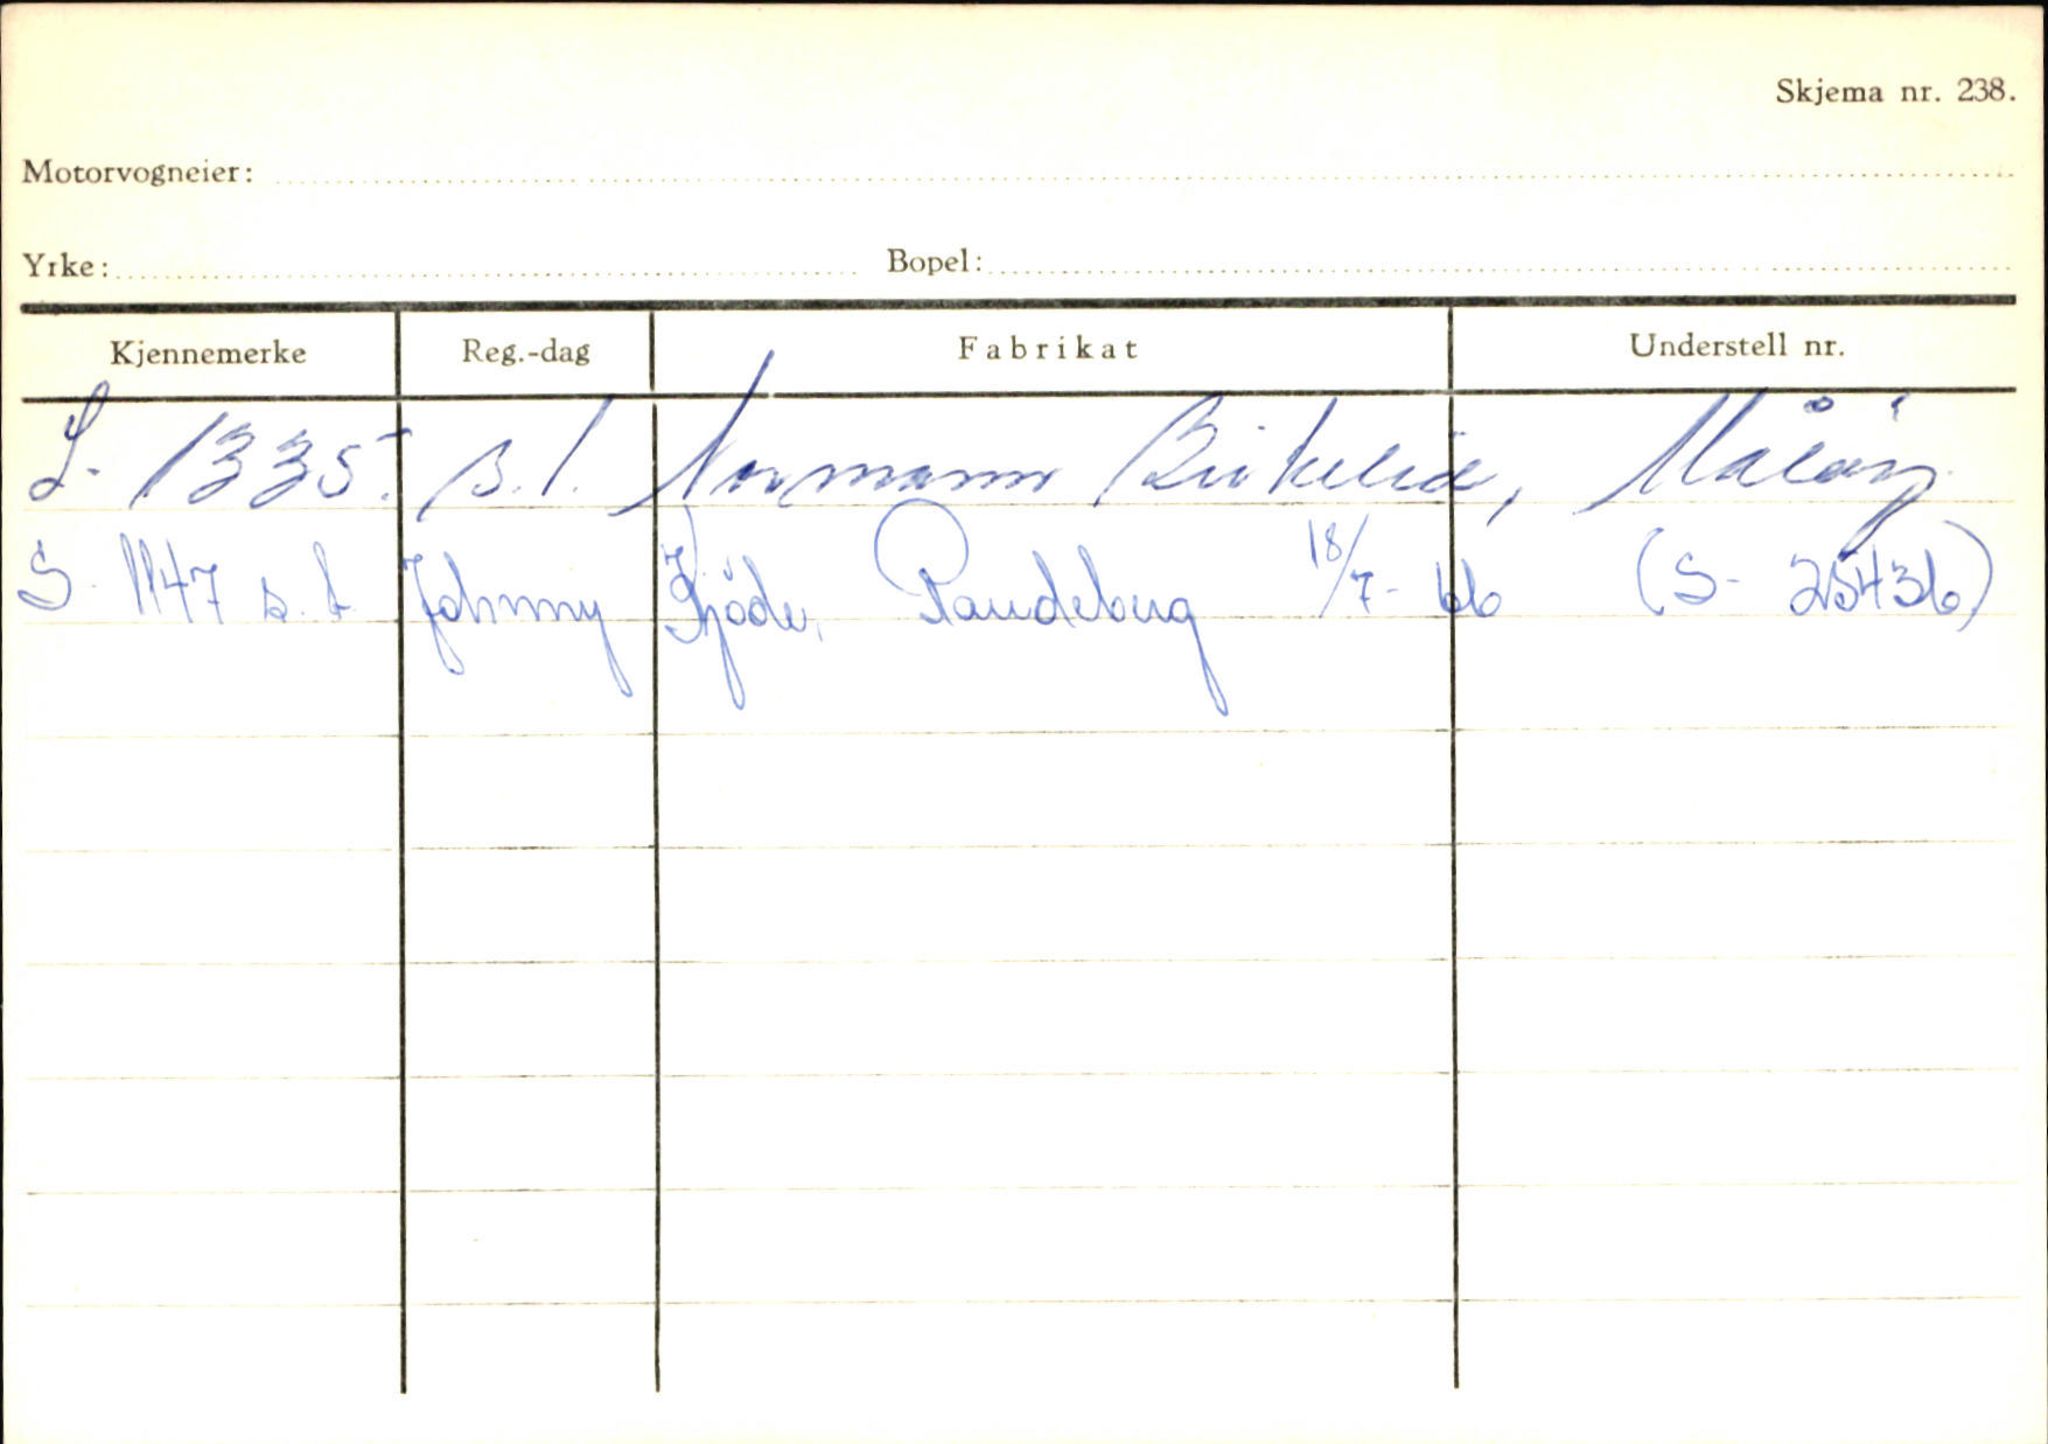 Skjema nr. 238.
Motorvogneier:
Yrke: Bopel:
Kjennemerke Reg.-dag Fabrikat Understell nr.
S- 1335. s.t. Normann Birkelid, Måløy
S- 1147 s.t. Johnny Raudeberg 18/7-66 (S- 25436)